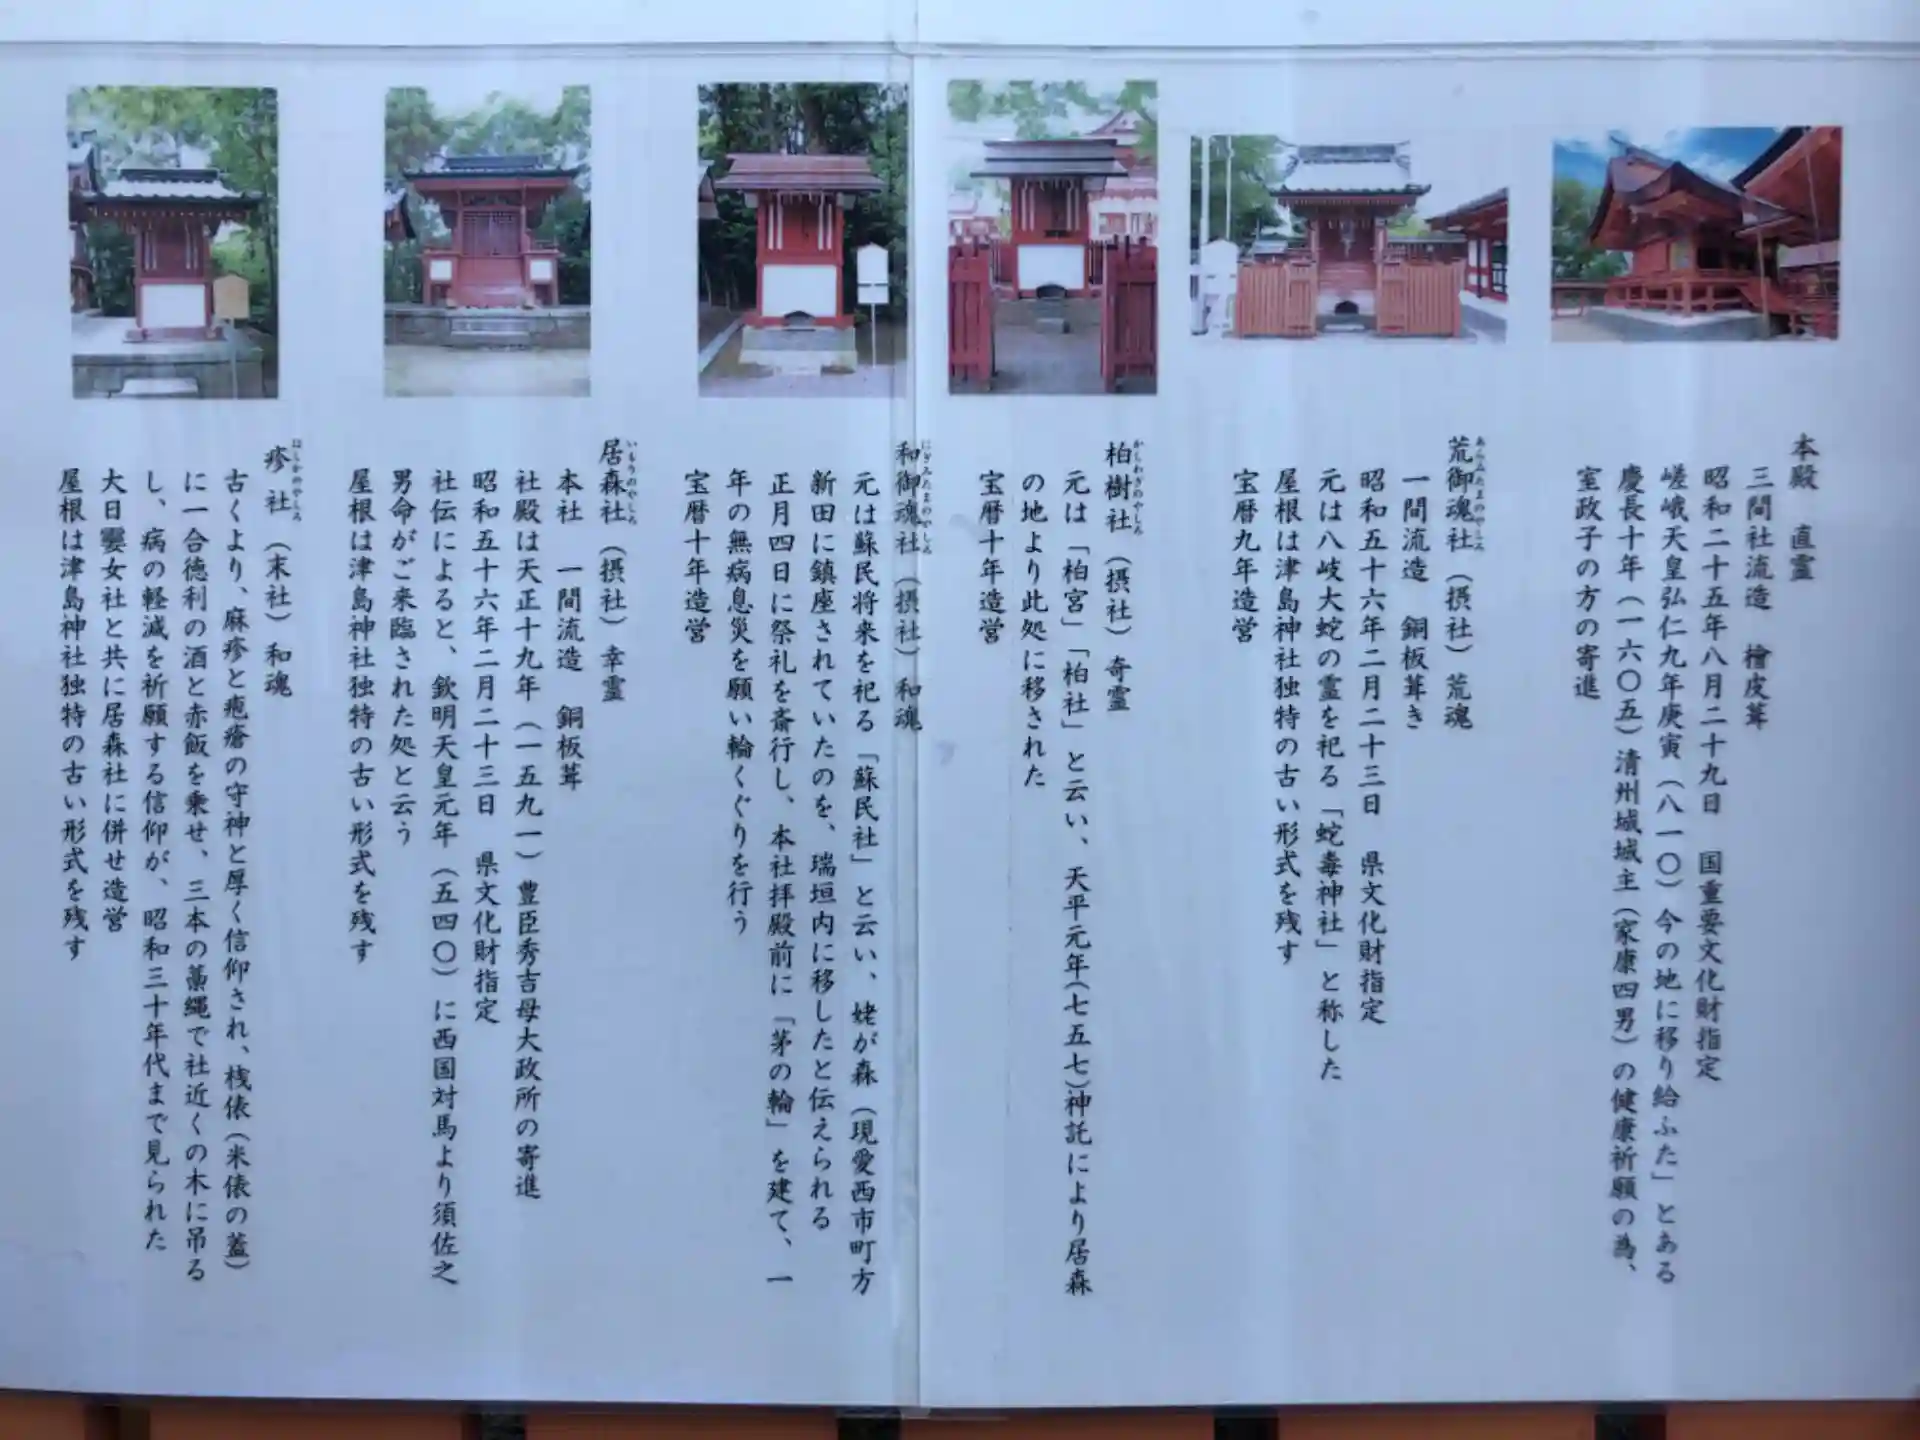 本殿　直霊
三間社流造　檜皮葺
昭和二十五年八月二十九日　国重要文化財指定
嵯峨天皇弘仁九年庚寅（八一〇）今の地に移り給ふた」とある
慶長十年（一六〇五）清州城城主（家康四男）の健康祈願の為、
室政子の方の寄進
荒御魂社（摂社）荒魂
あらみたまのやしろ
一間流造　銅板葺き
昭和五十六年二月二十三日　県文化財指定
元は八岐大蛇の霊を祀る「蛇毒神社」と称した
屋根は津島神社独特の古い形式を残す
宝暦九年造営
柏樹社（摂社）奇霊
かしわぎのやしろ
元は「柏宮」「柏社」と云い、天平元年（七五七）神託により居森
の地より此処に移された
宝暦十年造営
和御魂社（摂社）和魂
にぎみたまのやしろ
元は蘇民将来を祀る「蘇民社」と云い、姥が森（現愛西市町方
新田に鎮座されていたのを、瑞垣内に移したと伝えられる
正月四日に祭礼を斎行し、本社拝殿前に「茅の輪」を建て、一
年の無病息災を願い輪くぐりを行う
宝暦十年造営
居森社（摂社）幸霊
いもりのやしろ
本社　一間流造　銅板葺
社殿は天正十九年（一五九一）豊臣秀吉母大政所の寄進
昭和五十六年二月二十三日　県文化財指定
社伝によると、欽明天皇元年（五四〇）に西国対馬より須佐之
男命がご来臨された処と云う
屋根は津島神社独特の古い形式を残す
疹社（末社）和魂
はしかのやしろ
古くより、麻疹と疱瘡の守神と厚く信仰され、桟俵（米俵の蓋）
に一合徳利の酒と赤飯を乗せ、三本の藁縄で社近くの木に吊る
し、病の軽減を祈願する信仰が、昭和三十年代まで見られた
大日孁女社と共に居森社に併せ造営
屋根は津島神社独特の古い形式を残す